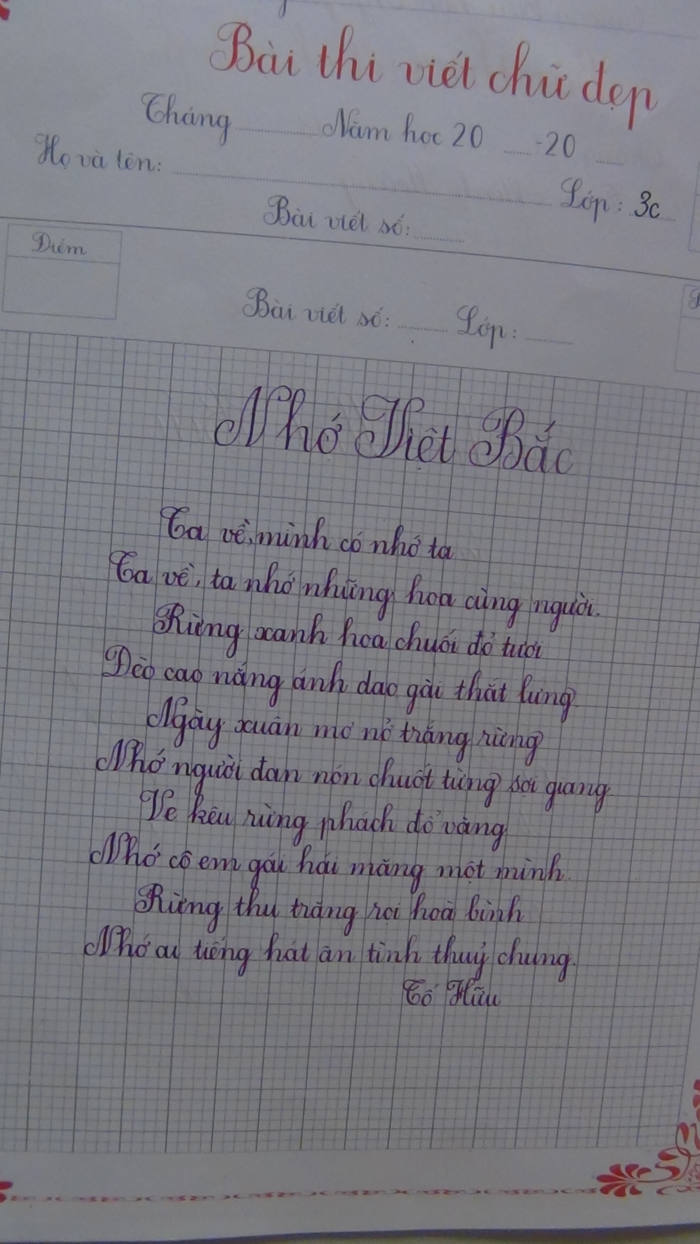 Bài thi viết chữ đẹp
Tháng ........ Năm học 20 ..... -20 .....
Họ và tên: ........ Lớp: 3c
Bài viết số: ........
Điểm
Bài viết số: ........ Lớp: ........
Nhớ Việt Bắc
Ta về, mình có nhớ ta
Ta về, ta nhớ những hoa cùng người.
Rừng xanh hoa chuối đỏ tươi
Đèo cao nắng ánh dao gài thắt lưng
Ngày xuân mơ nở trắng rừng
Nhớ người đan nón chuốt từng sợi giang
Ve kêu rừng phách đổ vàng
Nhớ cô em gái hái măng một mình
Rừng thu trăng rọi hoà bình
Nhớ ai tiếng hát ân tình thuỷ chung.
Tố Hữu